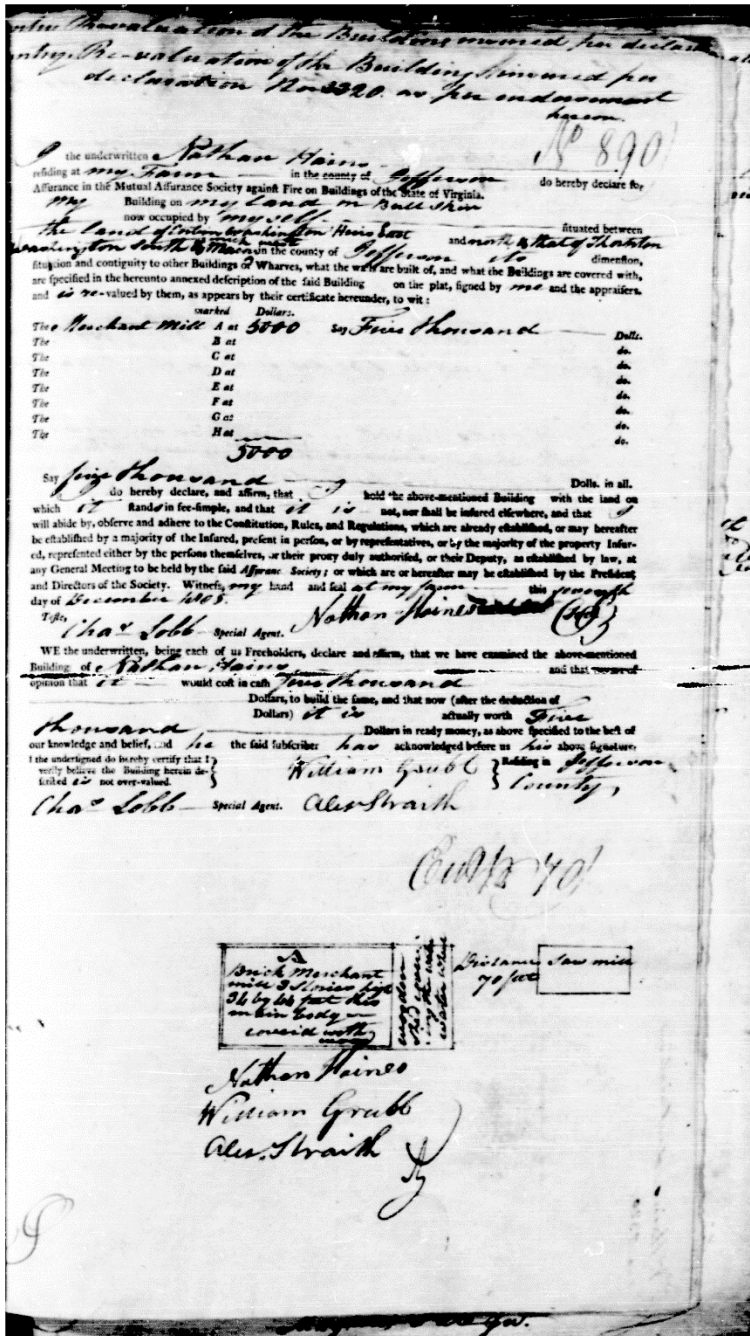 Re-valuation of the Buildings insured per declara
Re-valuation of the Building insured per
declaration No 3320. as per endorsement
hereon
No 890
I the underwritten Nathan Hains
residing at my Farm in the county of Jefferson do hereby declare for
Assurance in the Mutual Assurance Society against Fire on Buildings of the State of Virginia.
My Building on my land on Bull Skin
now occupied by myself situated between
the land of Washington Heirs East and north & that of Thornton
Washington South & west in the county of Jefferson its dimension,
situation and contiguity to other Buildings or Wharves, what the walls are built of, and what the Buildings are covered with,
are specified in the hereunto annexed description of the said Building on the plat, signed by me and the appraisers.
and is re-valued by them, as appears by their certificate hereunder, to wit:
marked Dollars.
The Merchant Mill A at 5000 say Five thousand Dolls.
The B at do.
The C at do.
The D at do.
The E at do.
The F at do.
The G at do.
The H at do.
5000
Say five thousand Dolls. in all.
I do hereby declare, and affirm, that I hold the above-mentioned Building with the land on
which it stands in fee-simple, and that it is not, nor shall be insured elsewhere, and that I
will abide by, observe and adhere to the Constitution, Rules, and Regulations, which are already established, or may hereafter
be established by a majority of the Insured, present in person, or by representatives, or by the majority of the property Insur-
ed, represented either by the persons themselves, or their proxy duly authorised, or their Deputy, as established by law, at
any General Meeting to be held by the said Assurance Society; or which are or hereafter may be established by the President
and Directors of the Society. Witness my hand and seal at my farm this seventh
day of December 1805.
Teste, Nathan Haines
Chas Lobb Special Agent.
WE the underwritten, being each of us Freeholders, declare and affirm, that we have examined the above-mentioned
Building of Nathan Hains and that we are of
opinion that it would cost in cash five thousand
Dollars, to build the same, and that now (after the deduction of
Dollars) it is actually worth Five
thousand Dollars in ready money, as above specified to the best of
our knowledge and belief, and he the said subscriber has acknowledged before us his above signature.
I the undersigned do hereby certify that I
verify believe the Building herein de-
scribed is not over-valued.
William Grubb Residing in Jefferson
County,
Chas Lobb Special Agent. Alex Straith
A
Brick Merchant
mill 3 Stories high
34 by 44 feet this
main body
coverd with
wood
wooden
Shed cover-
ing the
water wheel
Distance
70 feet
Saw mill
Nathan Haines
William Grubb
Alex. Straith